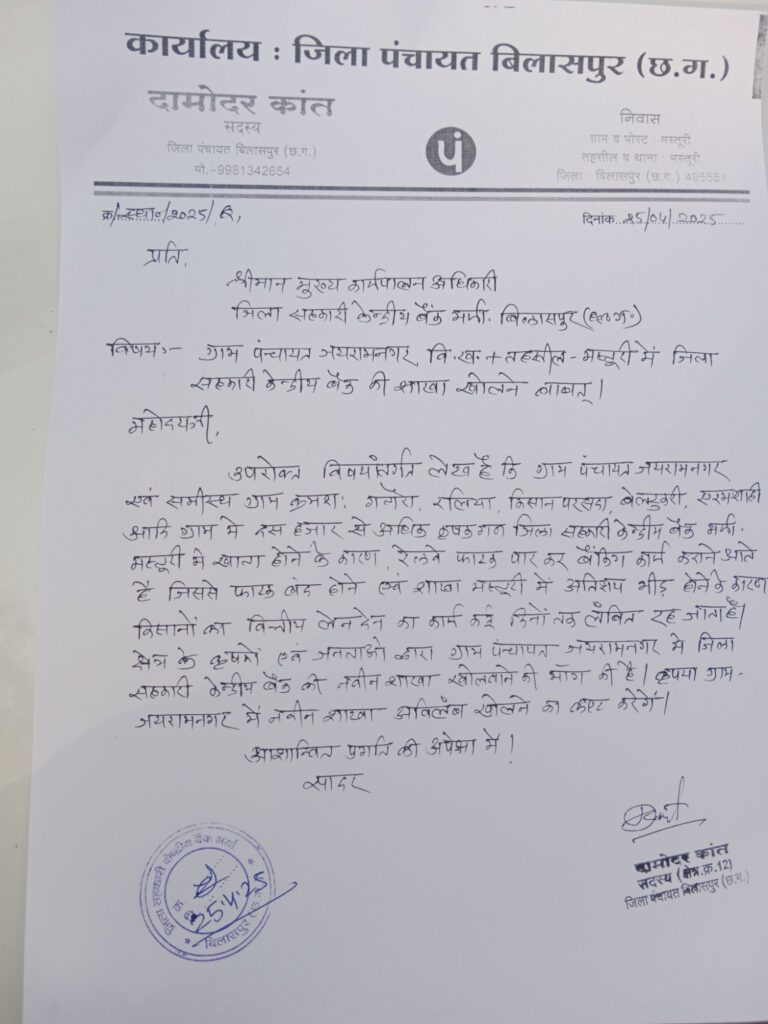 कार्यालय : जिला पंचायत बिलासपुर (छ.ग.)
दामोदर कांत
सदस्य
जिला पंचायत बिलासपुर (छ.ग.)
मो.-9981342654
पं
निवास
ग्राम व पोस्ट : मस्तूरी
तहसील व थाना : मस्तूरी
जिला : बिलासपुर (छ.ग.) 495551
क्र/स्था०/2025/
दिनांक 25/04/2025
प्रति,
श्रीमान मुख्य कार्यपालन अधिकारी
जिला सहकारी केन्द्रीय बैंक मर्या. बिलासपुर (छ०ग०)
विषय:- ग्राम पंचायत जयरामनगर, वि.ख. + तहसील - मस्तूरी में जिला
सहकारी केन्द्रीय बैंक की शाखा खोलने बाबत् ।
महोदयजी,
उपरोक्त विषयांतर्गत लेख है कि ग्राम पंचायत जयरामनगर
एवं समीस्थ ग्राम क्रमश: गतौरा, रलिया, किसान परसदा, बेलटुकरी, एरमशाही
आदि ग्राम मे दस हजार से अधिक कृषकगन जिला सहकारी केन्द्रीय बैंक मर्या.
मस्तूरी मे खाता होने के कारण, रेलवे फाटक पार कर बैंकिंग कार्य कराने आते
है जिससे फाटक बंद होने एवं शाखा मस्तूरी में अतिशय भीड़ होने के कारण
किसानों का वित्तीय लेन देन का कार्य कई दिनों तक लंबित रह जाता है।
क्षेत्र के कृषकों एवं जनताओ द्वारा ग्राम पंचायत जयरामनगर मे जिला
सहकारी केन्द्रीय बैंक की नवीन शाखा खोलवाने की माँग की है। कृपया ग्राम-
जयरामनगर में नवीन शाखा अविलंब खोलने का कष्ट करेगें।
आशान्वित प्रगति की अपेक्षा में।
सादर
दामोदर कांत
सदस्य (क्षेत्र.क्र.12)
जिला पंचायत बिलासपुर (छ.ग.)
जिला सहकारी केन्द्रीय बैंक मर्या
25.4.25
बिलासपुर